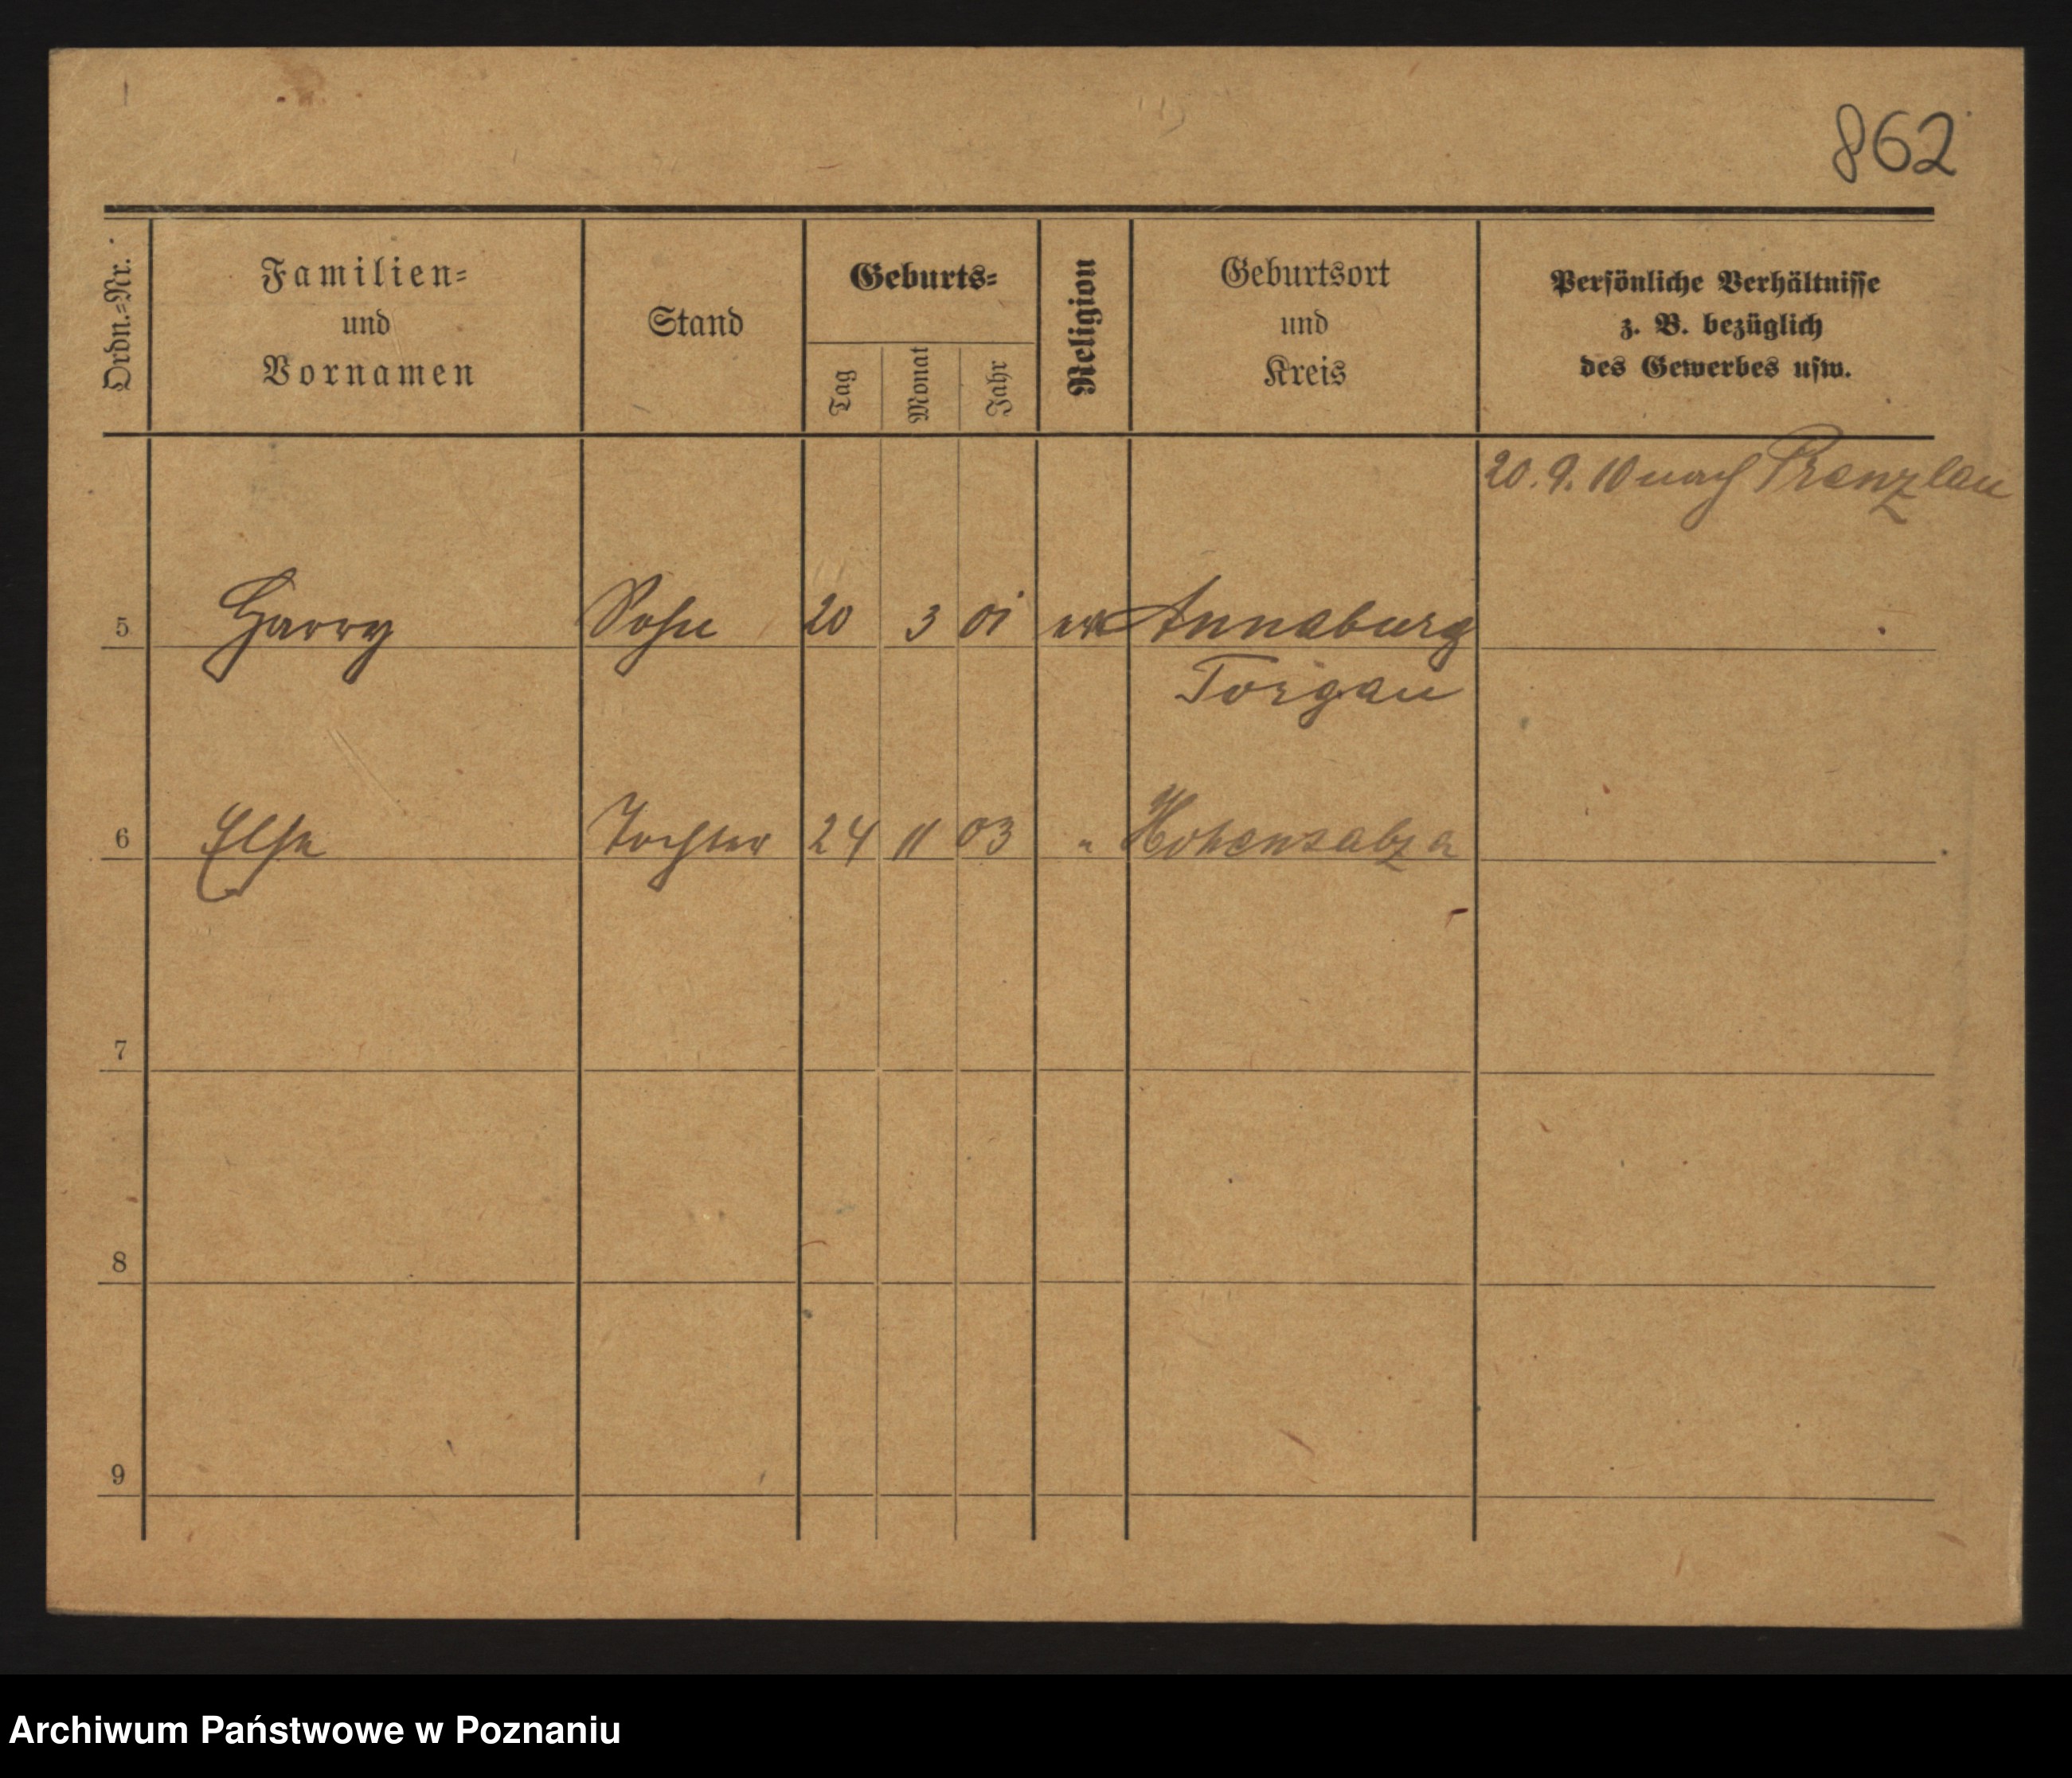 862
Ordn.-Nr.
Familien-
und
Vornamen
Stand
Geburts-
Tag
Monat
Jahr
Religion
Geburtsort
und
Kreis
Persönliche Verhältnisse
z. B. bezüglich
des Gewerbes usw.
20. 9. 10 nach Prenzlau
5 Harry Sohn 20 3 01 ev Annaburg
Torgau
6 Else Tochter 24 11 03 " Hohensalza
7
8
9
Archiwum Państwowe w Poznaniu